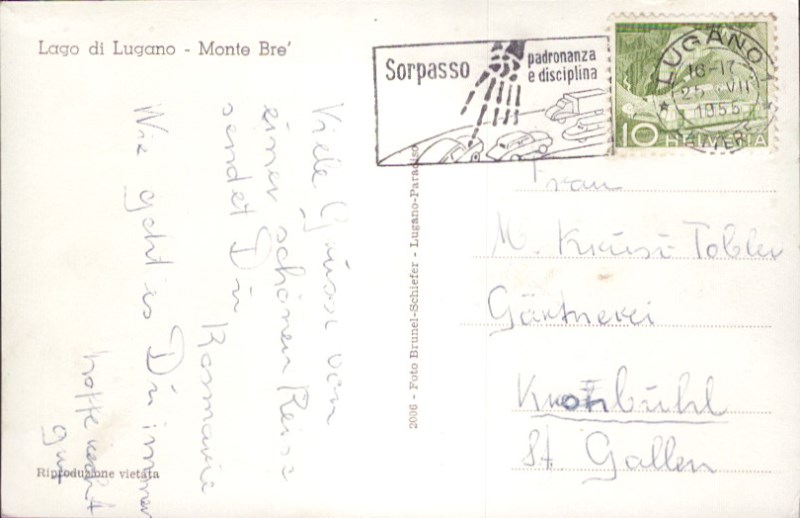 Lago di Lugano - Monte Bre'
Sorpasso
padronanza
e disciplina
LUGANO 1
1955
10 HELVETIA
Viele Grüsse von
einer schönen Reise
sendet Dir
Rosmarie
Wie geht es Dir immer
hoffe recht
gut
Frau
M. Krüsi-Tobler
Gärtnerei
Kronbühl
St. Gallen
2006 - Foto Brunel-Schiefer - Lugano-Paradiso
Riproduzione vietata